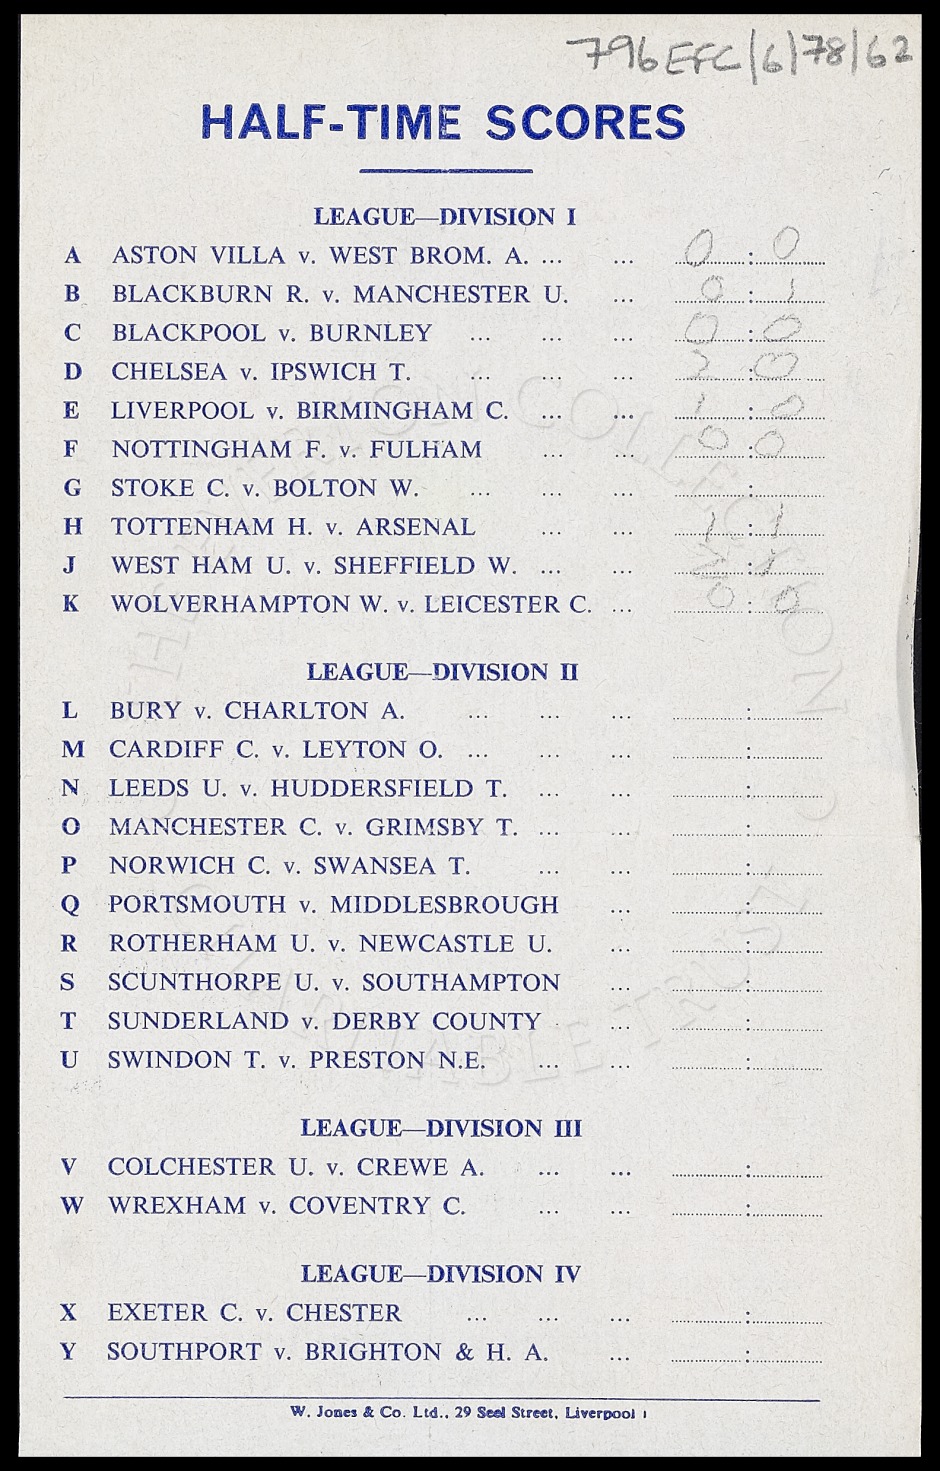 796EFC/6/78/62
HALF-TIME SCORES
LEAGUE—DIVISION I
A ASTON VILLA v. WEST BROM. A. ... ... 0 : 0
B BLACKBURN R. v. MANCHESTER U. ... 0 : 1
C BLACKPOOL v. BURNLEY ... ... ... 0 : 0
D CHELSEA v. IPSWICH T. ... ... ... 2 : 0
E LIVERPOOL v. BIRMINGHAM C. ... ... 1 : 0
F NOTTINGHAM F. v. FULHAM ... ... 0 : 0
G STOKE C. v. BOLTON W. ... ... ... :
H TOTTENHAM H. v. ARSENAL ... ... 1 : 1
J WEST HAM U. v. SHEFFIELD W. ... ... : 1
K WOLVERHAMPTON W. v. LEICESTER C. ... 0 : 0
LEAGUE—DIVISION II
L BURY v. CHARLTON A. ... ... ... :
M CARDIFF C. v. LEYTON O. ... ... ... :
N LEEDS U. v. HUDDERSFIELD T. ... ... :
O MANCHESTER C. v. GRIMSBY T. ... ... :
P NORWICH C. v. SWANSEA T. ... ... :
Q PORTSMOUTH v. MIDDLESBROUGH ... :
R ROTHERHAM U. v. NEWCASTLE U. ... :
S SCUNTHORPE U. v. SOUTHAMPTON ... :
T SUNDERLAND v. DERBY COUNTY ... :
U SWINDON T. v. PRESTON N.E. ... ... :
LEAGUE—DIVISION III
V COLCHESTER U. v. CREWE A. ... ... :
W WREXHAM v. COVENTRY C. ... ... :
LEAGUE—DIVISION IV
X EXETER C. v. CHESTER ... ... ... :
Y SOUTHPORT v. BRIGHTON & H. A. ... :
W. Jones & Co. Ltd., 29 Seel Street, Liverpool 1
THE EVERTON COLLECTION CHARITABLE TRUST